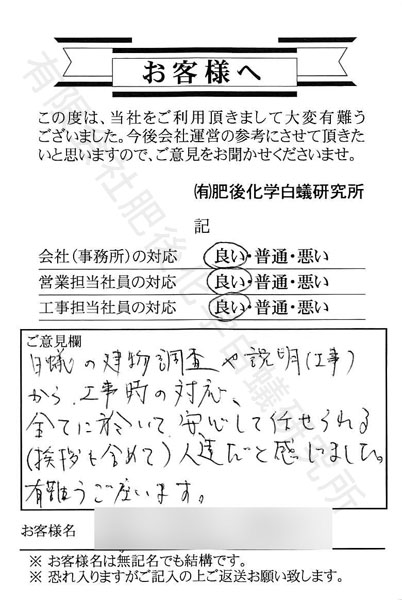 お客様へ
この度は、当社をご利用頂きまして大変有難う
ございました。今後会社運営の参考にさせて頂きた
いと思いますので、ご意見をお聞かせくださいませ。
㈲肥後化学白蟻研究所
記
会社(事務所)の対応 良い・普通・悪い
営業担当社員の対応 良い・普通・悪い
工事担当社員の対応 良い・普通・悪い
ご意見欄
白蟻の建物調査や説明(工事)
から、工事時の対応、
全てに於いて安心して任せられる
(挨拶も含めて)人達だと感じました。
有難うございます。
お客様名
※ お客様名は無記名でも結構です。
※ 恐れ入りますがご記入の上ご返送お願い致します。
有限会社肥後化学白蟻研究所